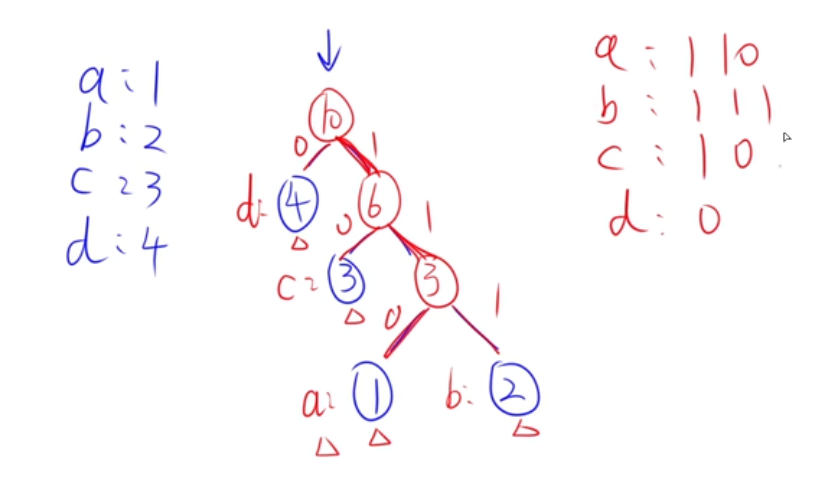 a:1
b:2
c:3
d:4
10
0 1
d: 4 6
0 1
c: 3 3
0 1
a: 1 b: 2
a: 110
b: 111
c: 10
d: 0